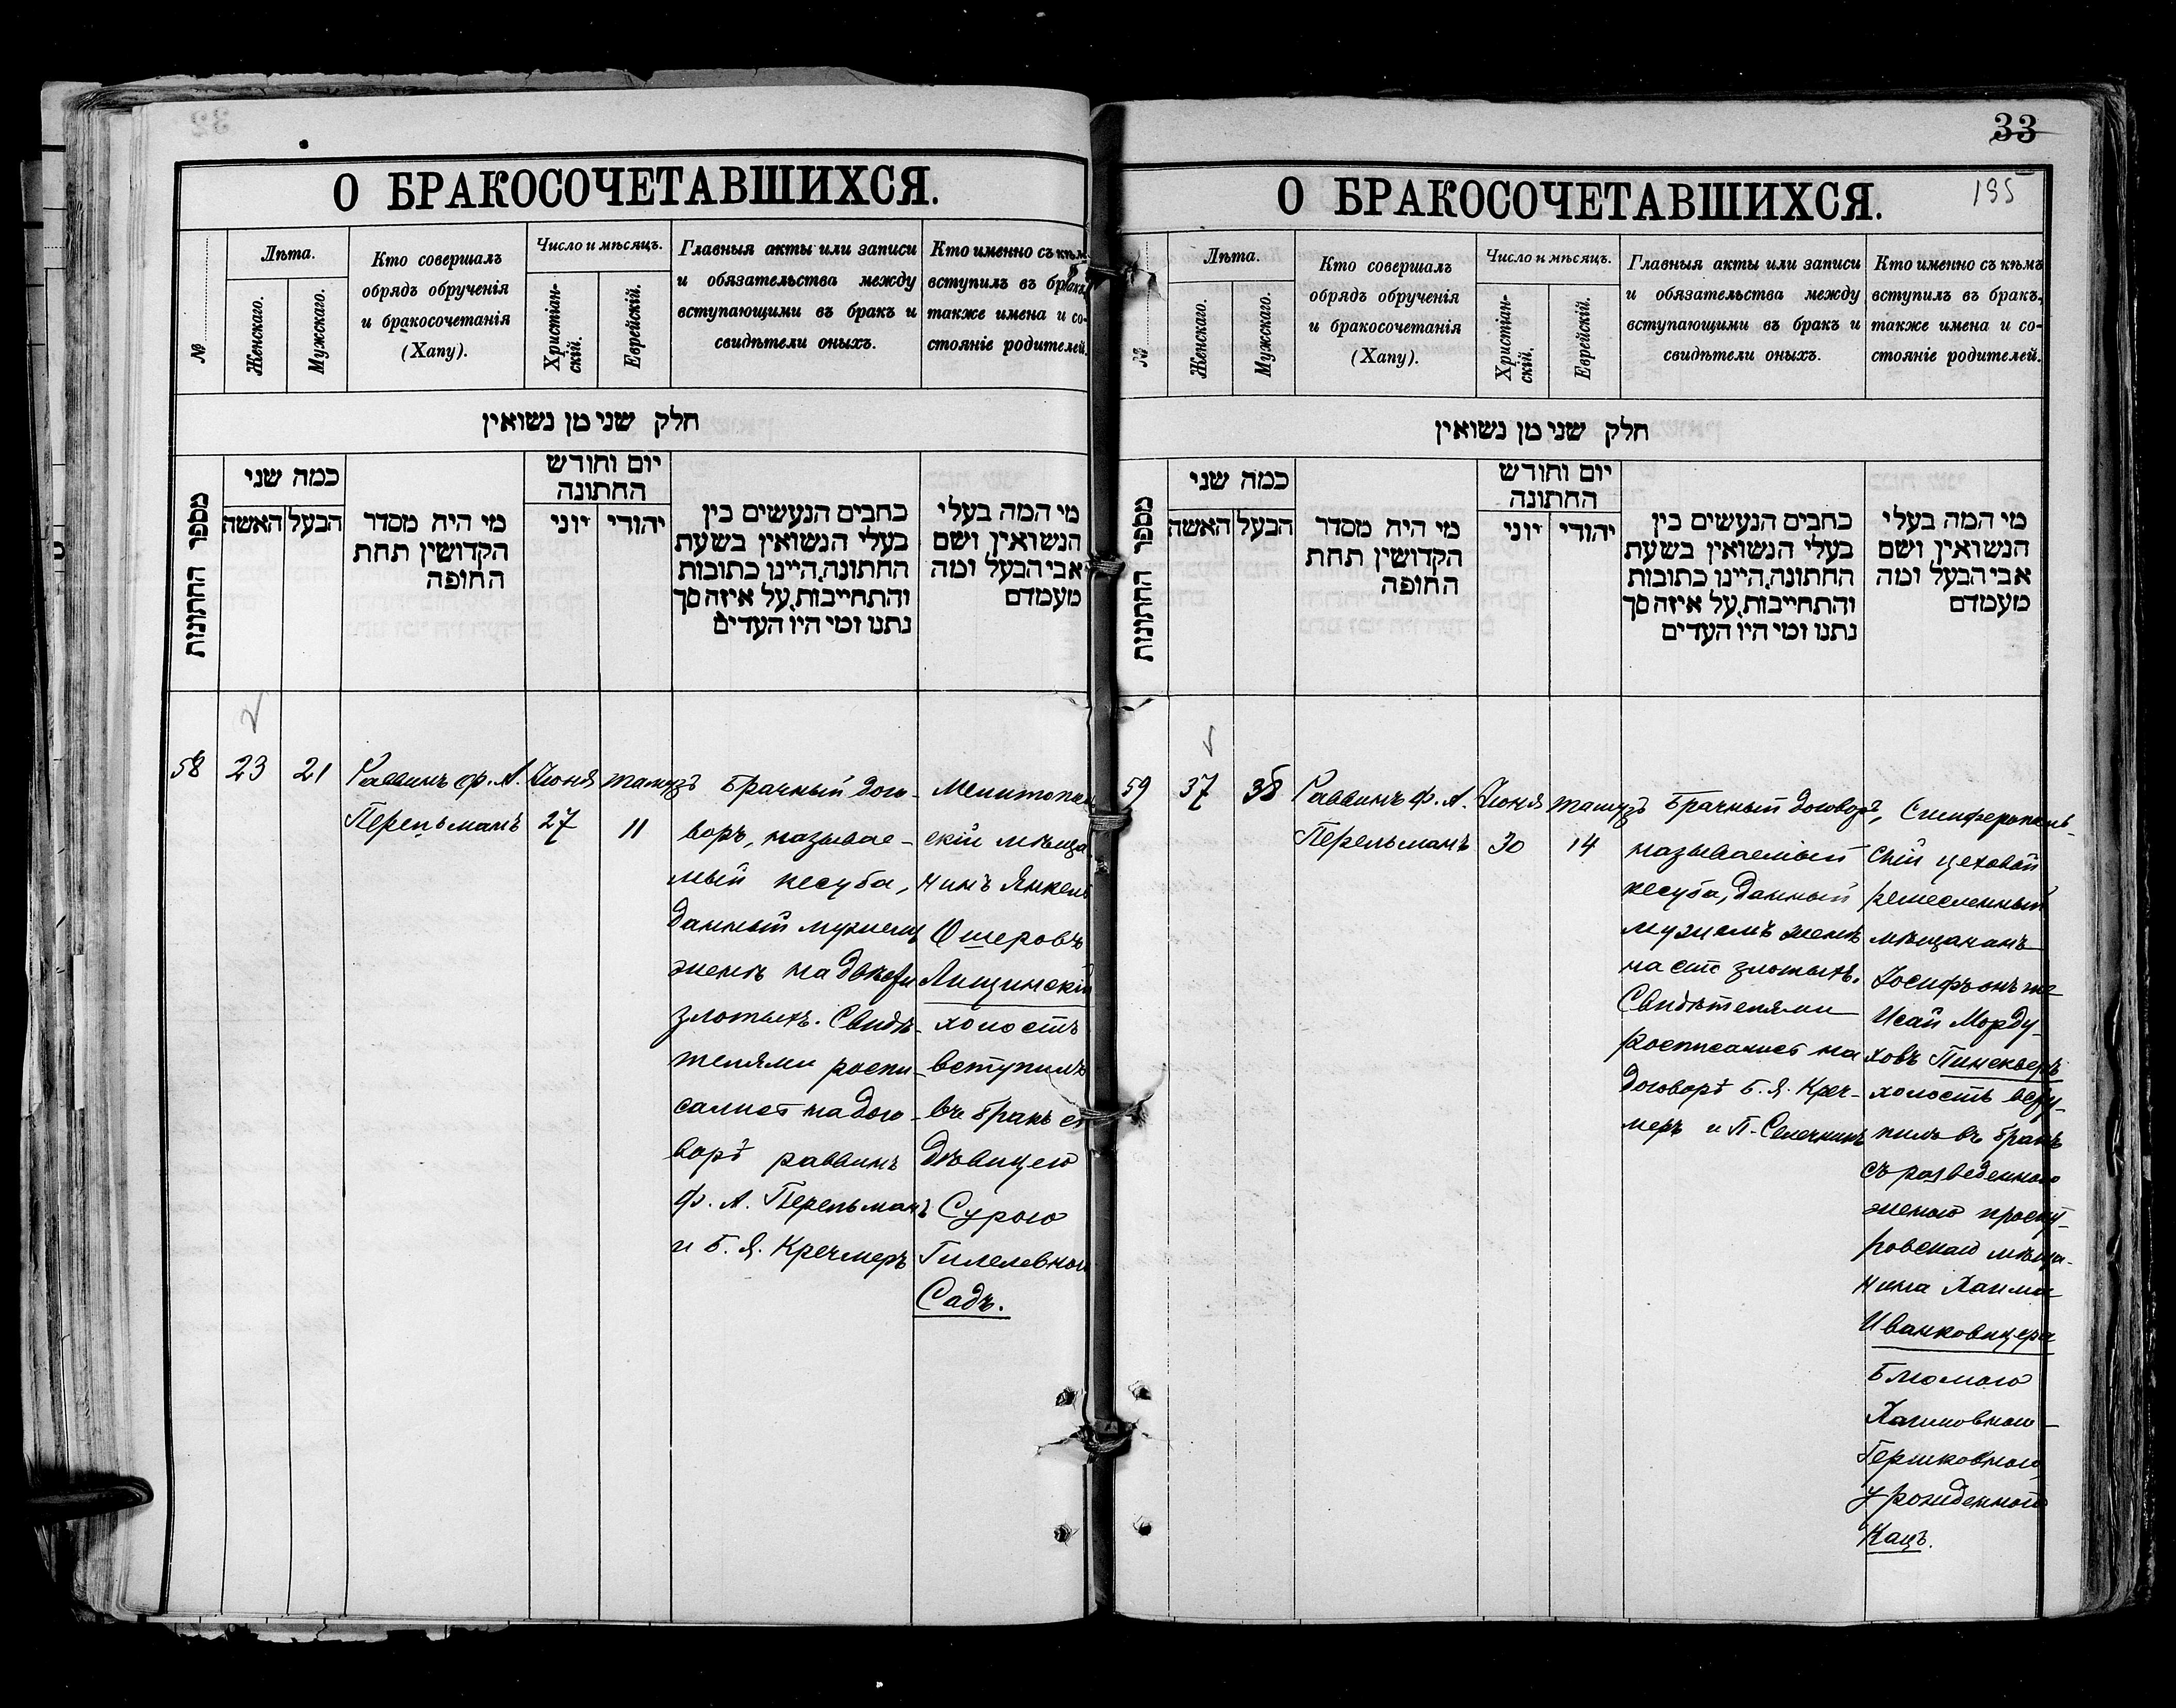 О БРАКОСОЧЕТАВШИХСЯ.
№
Лѣта.
Женскаго.
Мужскаго.
Кто совершалъ
обрядъ обрученія
и бракосочетанія
(Хапу).
Число и мѣсяцъ.
Христіан-
скій.
Еврейскій.
Главныя акты или записи
и обязательства между
вступающими въ бракъ и
свидѣтели оныхъ.
Кто именно съ кѣмъ
вступилъ въ бракъ,
также имена и со-
стояніе родителей.
חלק שני מן נשואין
מספר החתונות
כמה שני
הבעל האשה
מי היה מסדר
הקדושין תחת
החופה
יום וחודש
החתונה
יהודי יוני
כתבים הנעשים בין
בעלי הנשואין בשעת
החתונה, היינו כתובות
והתחייבות, על איזה סך
נתנו ומי היו העדים
מי המה בעלי
הנשואין ושם
אבי הבעל ומה
מעמדם
58
23
21
Раввинъ Ф. А.
Перельманъ
Июня
27
Тамузъ
11
Брачный дого-
воръ, называе-
мый кесуба,
данный мужемъ
женѣ на двѣсти
злотыхъ. Свидѣ-
телями роспи-
сались на дого-
ворѣ раввинъ
Ф. А. Перельманъ
и Б. Я. Кречмеръ
Мелитополь
скій мѣща
нинъ Янкель
Ошеровъ
Лищинскій
холостъ
вступилъ
въ бракъ съ
дѣвицею
Сурою
Гилелевною
Садъ.
33
195
О БРАКОСОЧЕТАВШИХСЯ.
№
Лѣта.
Женскаго.
Мужскаго.
Кто совершалъ
обрядъ обрученія
и бракосочетанія
(Хапу).
Число и мѣсяцъ.
Христіан-
скій.
Еврейскій.
Главныя акты или записи
и обязательства между
вступающими въ бракъ и
свидѣтели оныхъ.
Кто именно съ кѣмъ
вступилъ въ бракъ,
также имена и со-
стояніе родителей.
חלק שני מן נשואין
מספר החתונות
כמה שני
הבעל האשה
מי היה מסדר
הקדושין תחת
החופה
יום וחודש
החתונה
יהודי יוני
כתבים הנעשים בין
בעלי הנשואין בשעת
החתונה, היינו כתובות
והתחייבות, על איזה סך
נתנו ומי היו העדים
מי המה בעלי
הנשואין ושם
אבי הבעל ומה
מעמדם
59
37
38
Раввинъ Ф. А.
Перельманъ
Июня
30
Тамузъ
14
Брачный договоръ,
называемый
кесуба, данный
мужемъ женѣ
на сто злотыхъ.
Свидѣтелями
росписались на
договорѣ Б. Я. Креч-
меръ и П. Селечникъ
Симферополь-
скій цеховой
ремесленный
мѣщанинъ
Іосифъ онъ же
Исай Морду-
ховъ Пинскеръ
холостъ всту-
пилъ въ бракъ
съ разведенною
женою проску-
ровскаго мѣща-
нина Хаима
Иванковицера
Блюмою
Хаимовною-
Гершковною
урожденною
Кацъ.